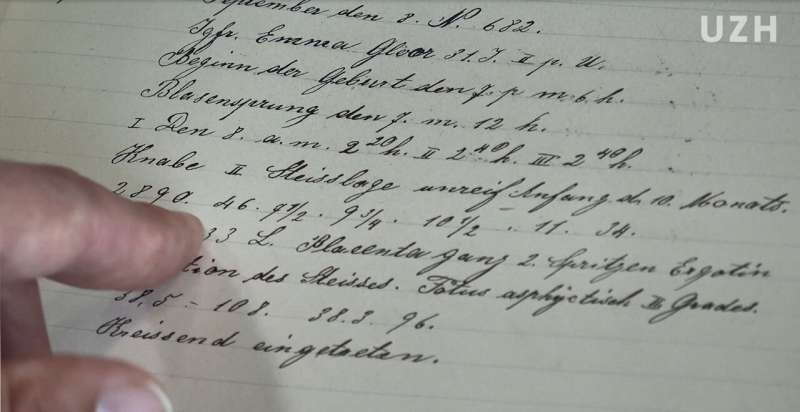 UZH
September den 8. N. 682.
Igfr. Emma Gloor 31. J. II p. U.
Beginn der Geburt den 7. p m 6. h.
Blasensprung den 7. m. 12 h.
I Den 8. a. m. 2 20 h. II 2 40 h. III 2 40 h.
Knabe II Steisslage unreif Anfang d. 10. Monats.
2890. 46. 9 1/2. 9 3/4. 10 1/2 - 11. 34.
33 L. Placenta ganz 2. Spritzen Ergotin
tion des Steisses. Fötus asphyctisch II Grades.
38,5 - 108. 38.3. 96.
Kreissend eingetreten.